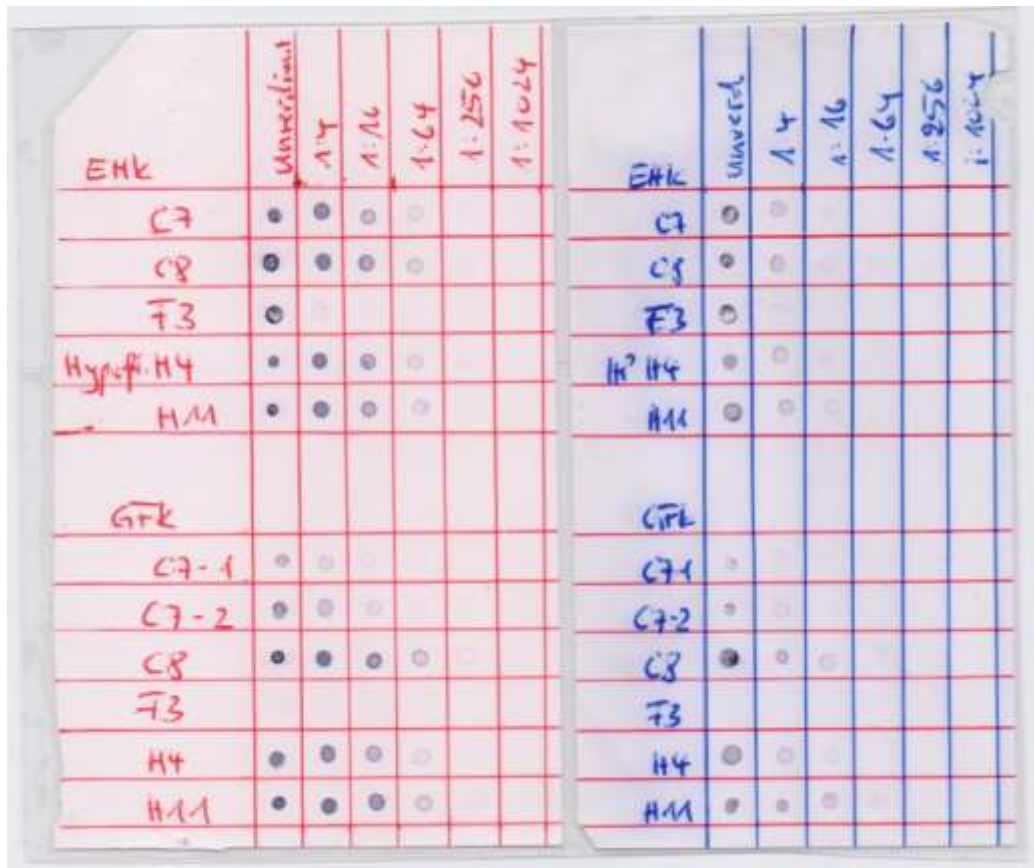 Unverdünnt 1:4 1:16 1:64 1:256 1:1024
EHK
C7
C8
F3
H4
H11
GFK
C7-1
C7-2
C8
F3
H4
H11
Unverd 1:4 1:16 1:64 1:256 1:1024
EHK
C7
C8
F3
H4
H11
GFK
C7-1
C7-2
C8
F3
H4
H11